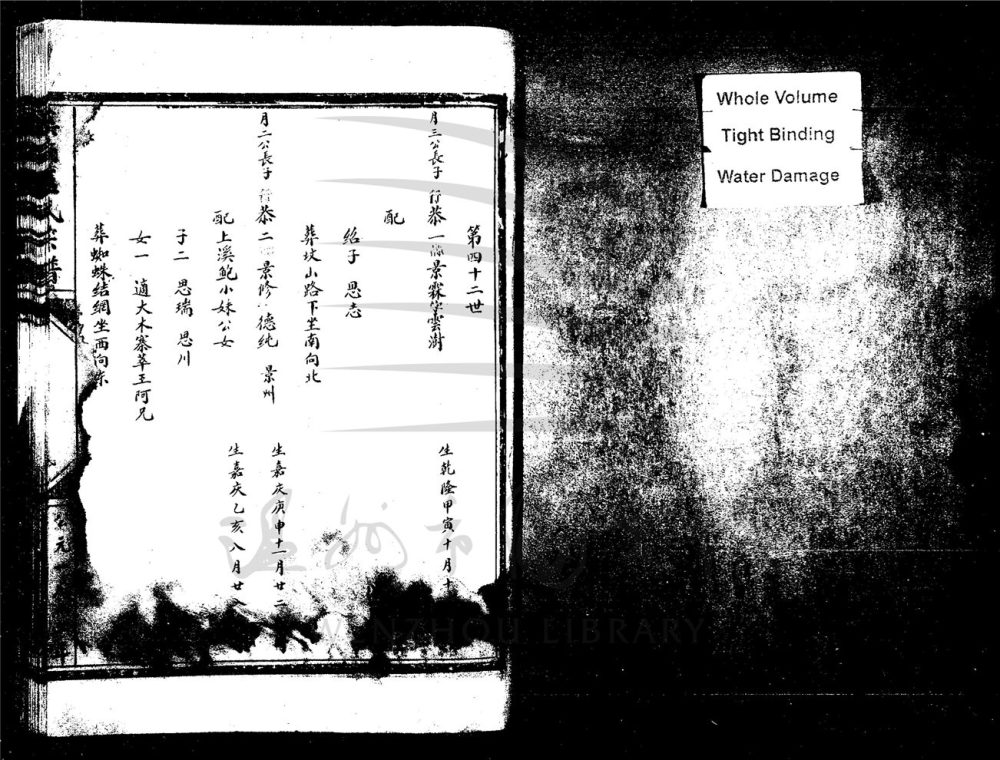 第四十二世
月三公長子 行恭一 景霖 雲澍
生乾隆甲寅十月十
配
紹子 思志
葬坟山路下坐南向北
月二公長子 行恭二 景修 德純 景州
生嘉庆庚申十一月廿二
配上溪鮑小妹公女
生嘉庆乙亥八月廿
子二 思瑞 思川
女一 適大木寨莘王阿兄
葬蜘蛛结網坐西向东
氏宗譜
元
Whole Volume
Tight Binding
Water Damage
温州市
WENZHOU LIBRARY